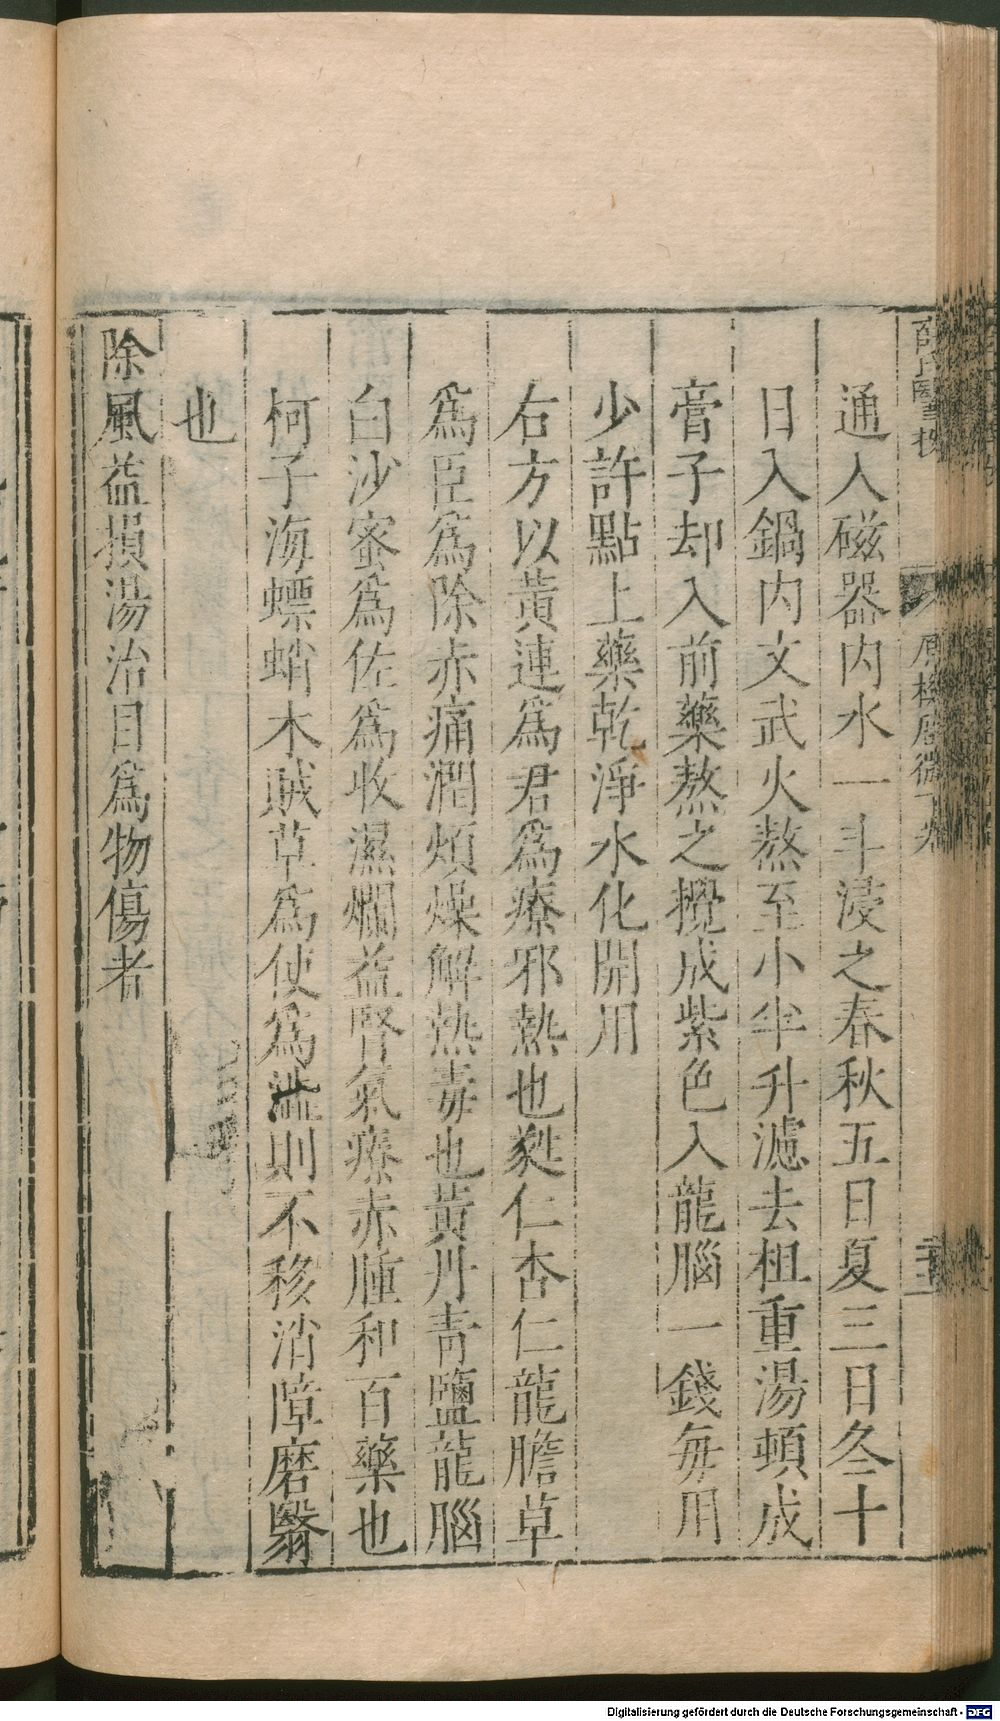 通入磁器内水一斗浸之春秋五日夏三日冬十
日入鍋内文武火熬至小半升濾去柤重湯頓成
膏子却入前藥熬之攪成紫色入龍腦一錢每用
少許點上藥乾淨水化開用
右方以黃連爲君爲療邪熱也蕤仁杏仁龍膽草
爲臣爲除赤痛潤煩燥解熱毒也黃丹青鹽龍腦
白沙蜜爲佐爲收濕爛益腎氣療赤腫和百藥也
柯子海螵蛸木賊草爲使爲澁則不移消障磨翳
也
除風益損湯治目爲物傷者
原機啟微下卷
Digitalisierung gefördert durch die Deutsche Forschungsgemeinschaft - DFG